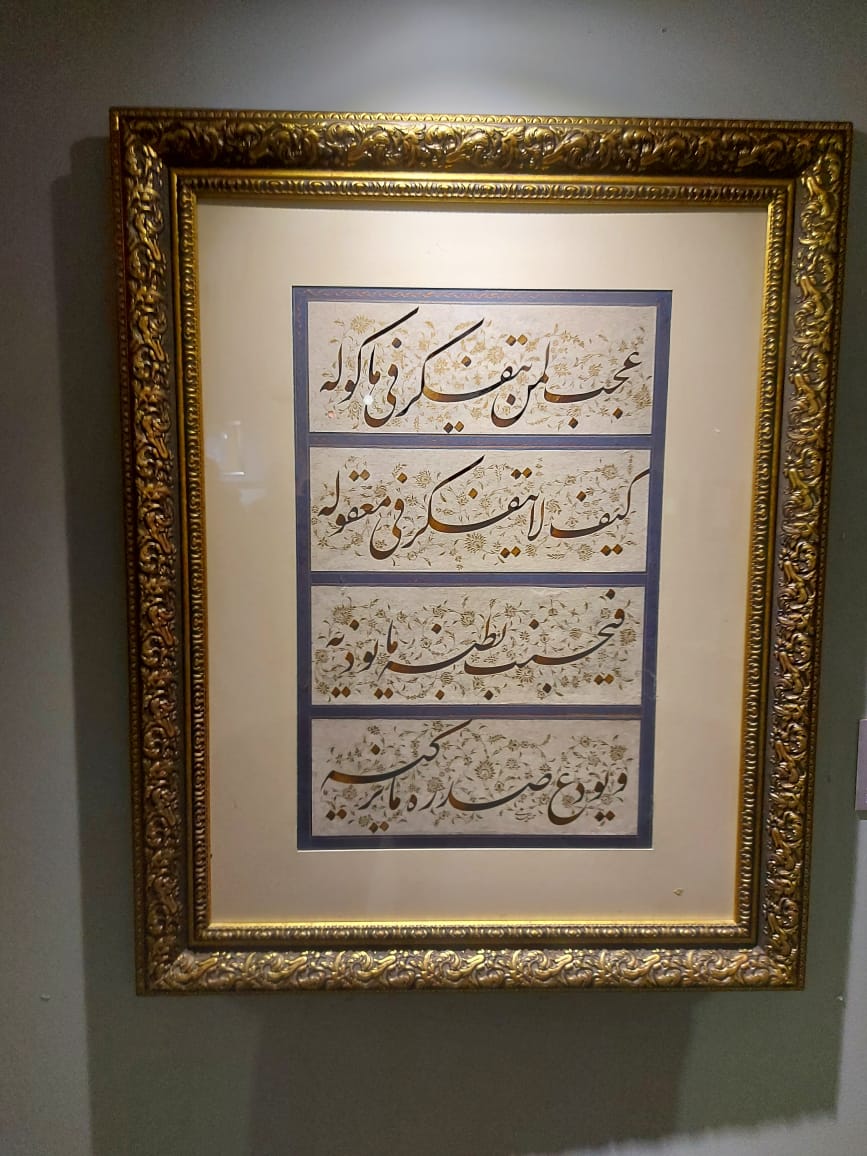 عجب لمن يتفكر فى ماكوله
كيف لا يتفكر فى معقوله
فيجنب بطنه ما يوذيه
و يودع صدره ما يزكيه